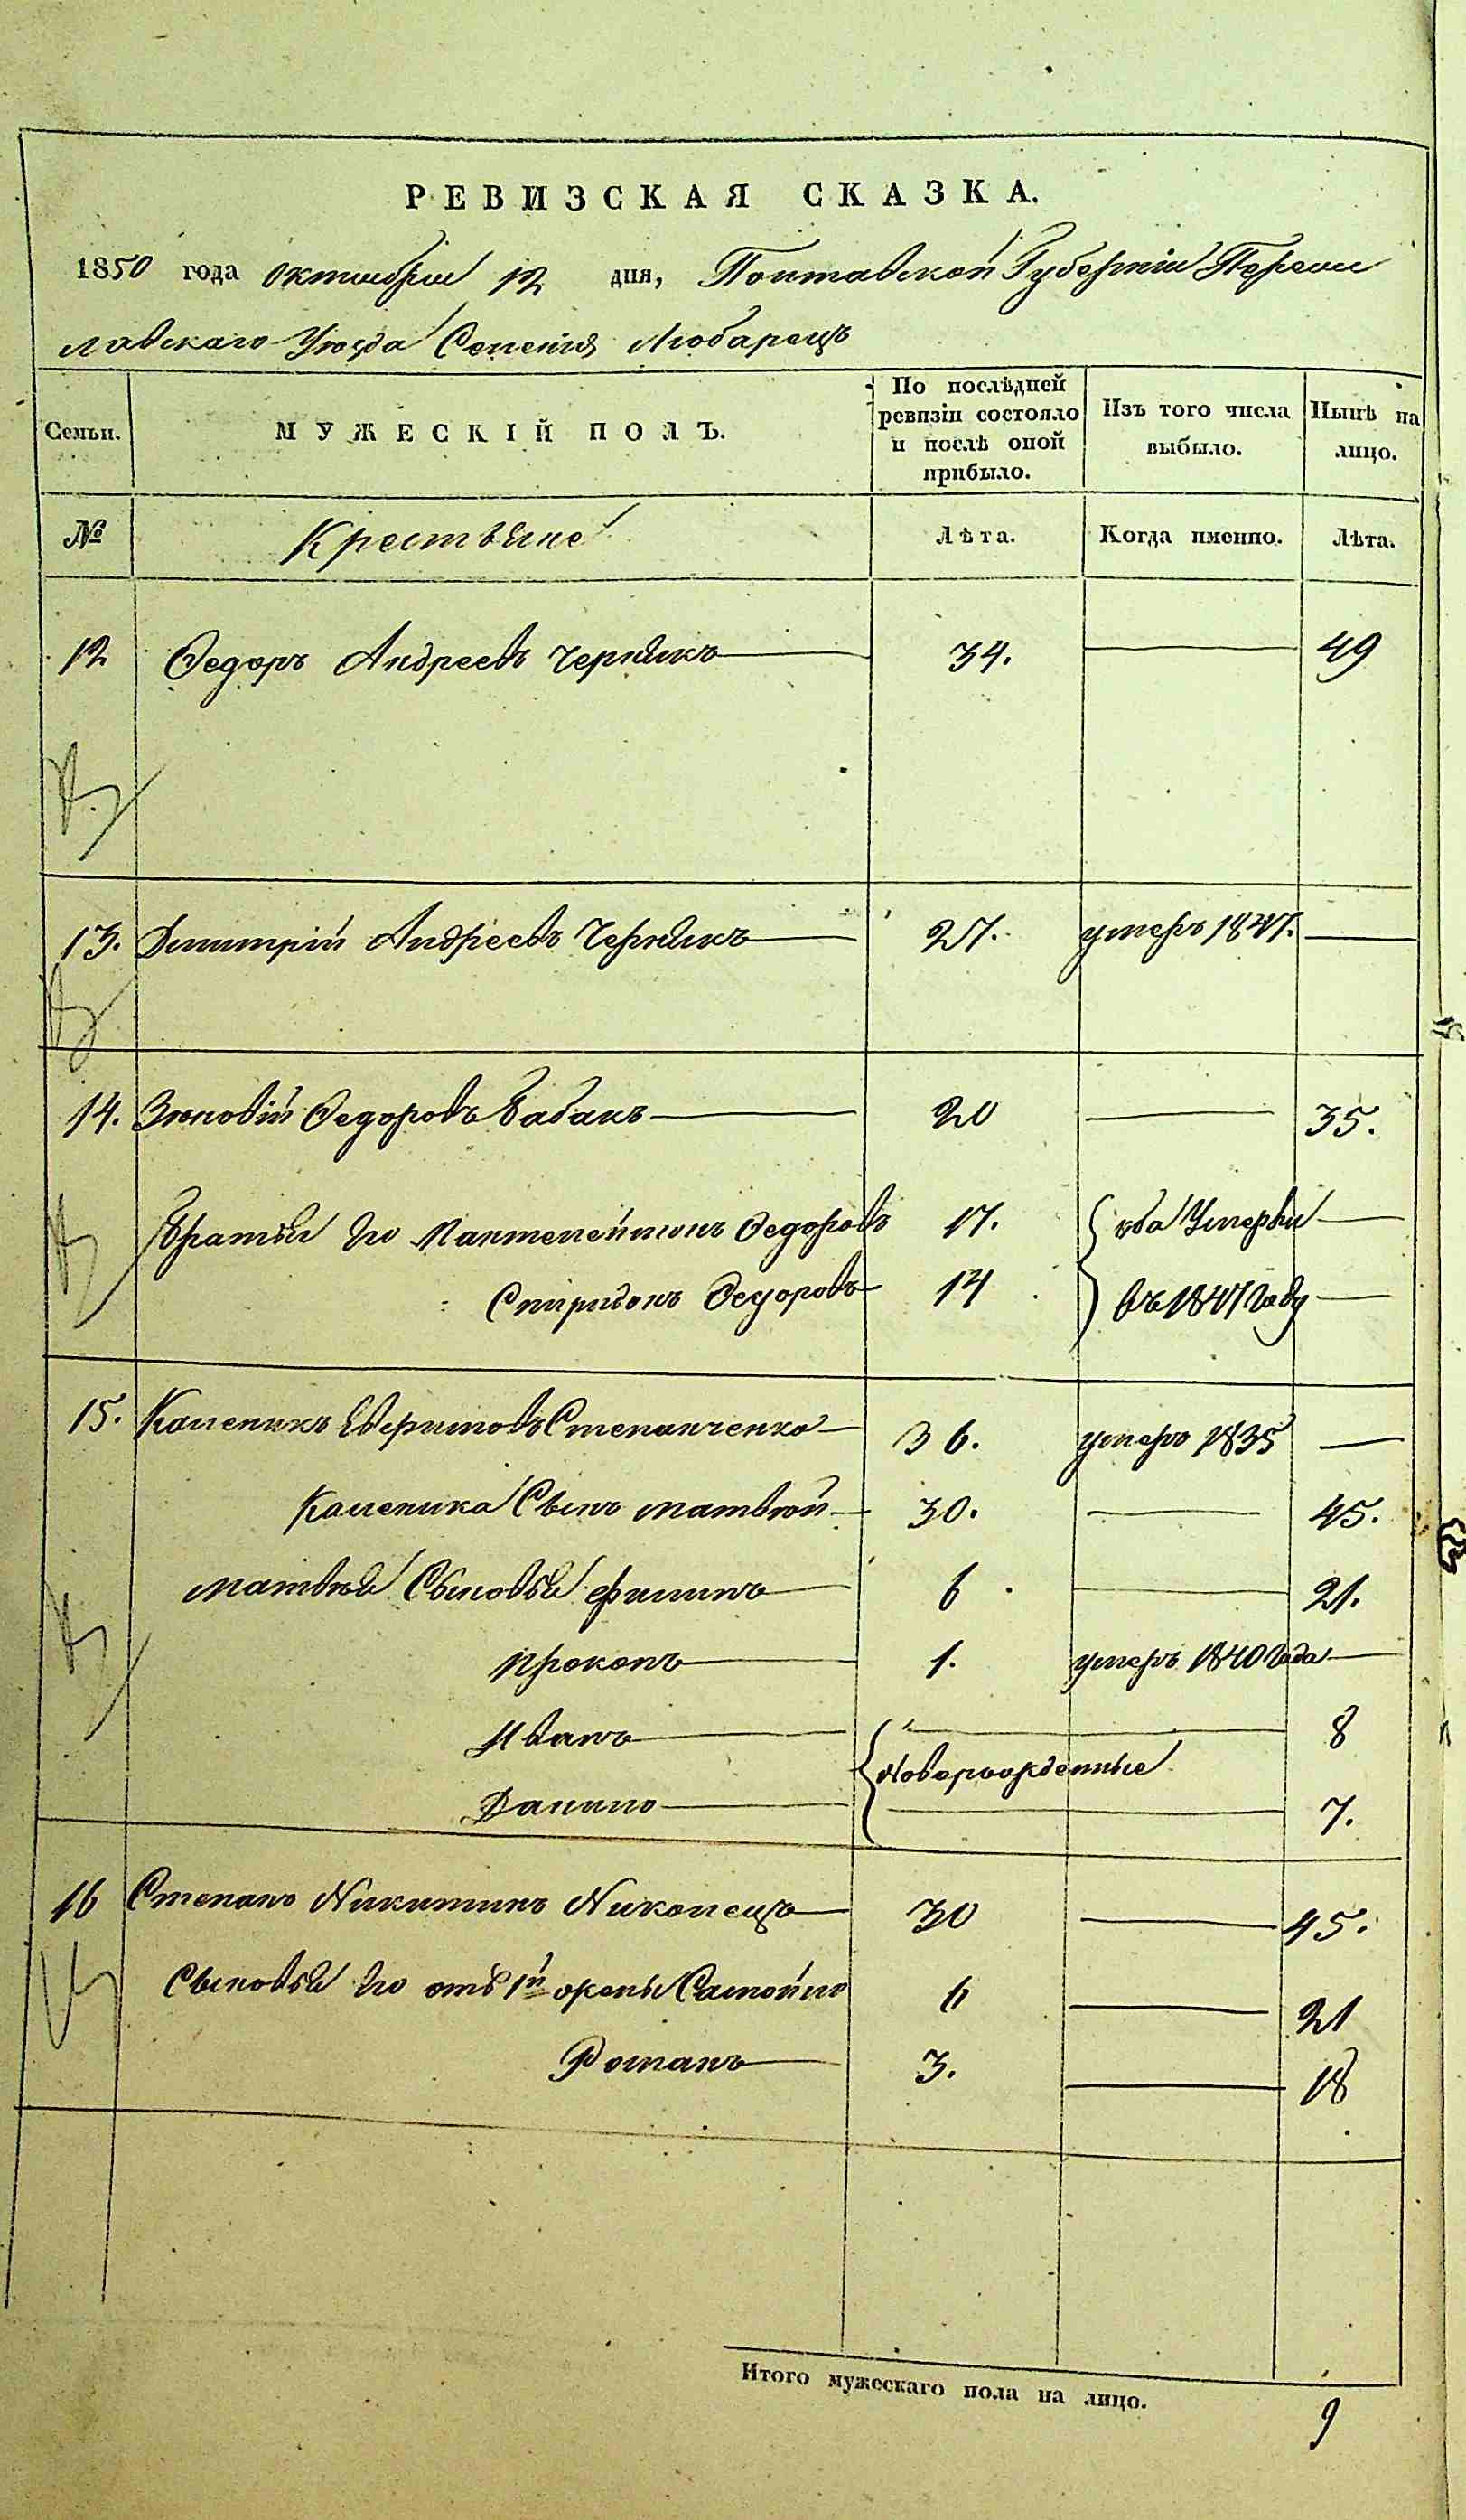 РЕВИЗСКАЯ СКАЗКА.
1850 года Октября 12 дня, Полтавской Губерніи Переяс
лавскаго Уѣзда Селенія Любарецъ
Семьи. МУЖЕСКІЙ ПОЛЪ. По послѣдней ревизіи состояло и послѣ оной прибыло. Изъ того числа выбыло. Нынѣ на лицо.
№ Крестьяне Лѣта. Когда именно. Лѣта.
12 Федоръ Андреевъ Чернякъ 34. 49
13. Димитрій Андреевъ Чернякъ 27. умеръ 1847.
14. Зѣновій Федоровъ Бабакъ 20 35.
Братья Его Пантелеймонъ Федоровъ 17. оба Умерли
Спиридонъ Федоровъ 14 въ 1847 Году
15. Каленикъ Степанченко 36. умеръ 1835
Каленика Сынъ Матвѣй 30. 45.
Матвѣя Сыновья Филипъ 6 21.
Прокопъ 1. умеръ 1840 Года
Иванъ 8
Новорожденные
Данило 7.
16 Степанъ Никитинъ Николецъ 30 45.
Сыновья Его отъ 1й жены Самойло 6 21
Романъ 3. 18
Итого мужескаго пола на лицо. 9